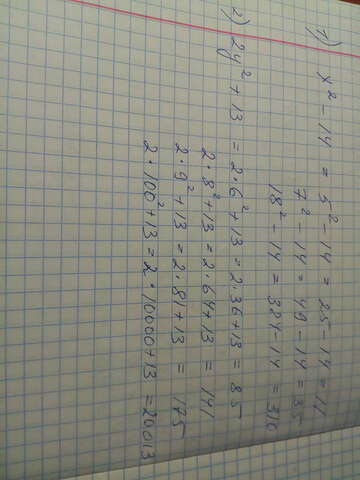 1) x² - 14 = 5² - 14 = 25 - 14 = 11
7² - 14 = 49 - 14 = 35
18² - 14 = 324 - 14 = 310
2) 2y² + 13 = 2·6² + 13 = 2·36 + 13 = 85
2·8² + 13 = 2·64 + 13 = 141
2·9² + 13 = 2·81 + 13 = 175
2·100² + 13 = 2·10000 + 13 = 20013